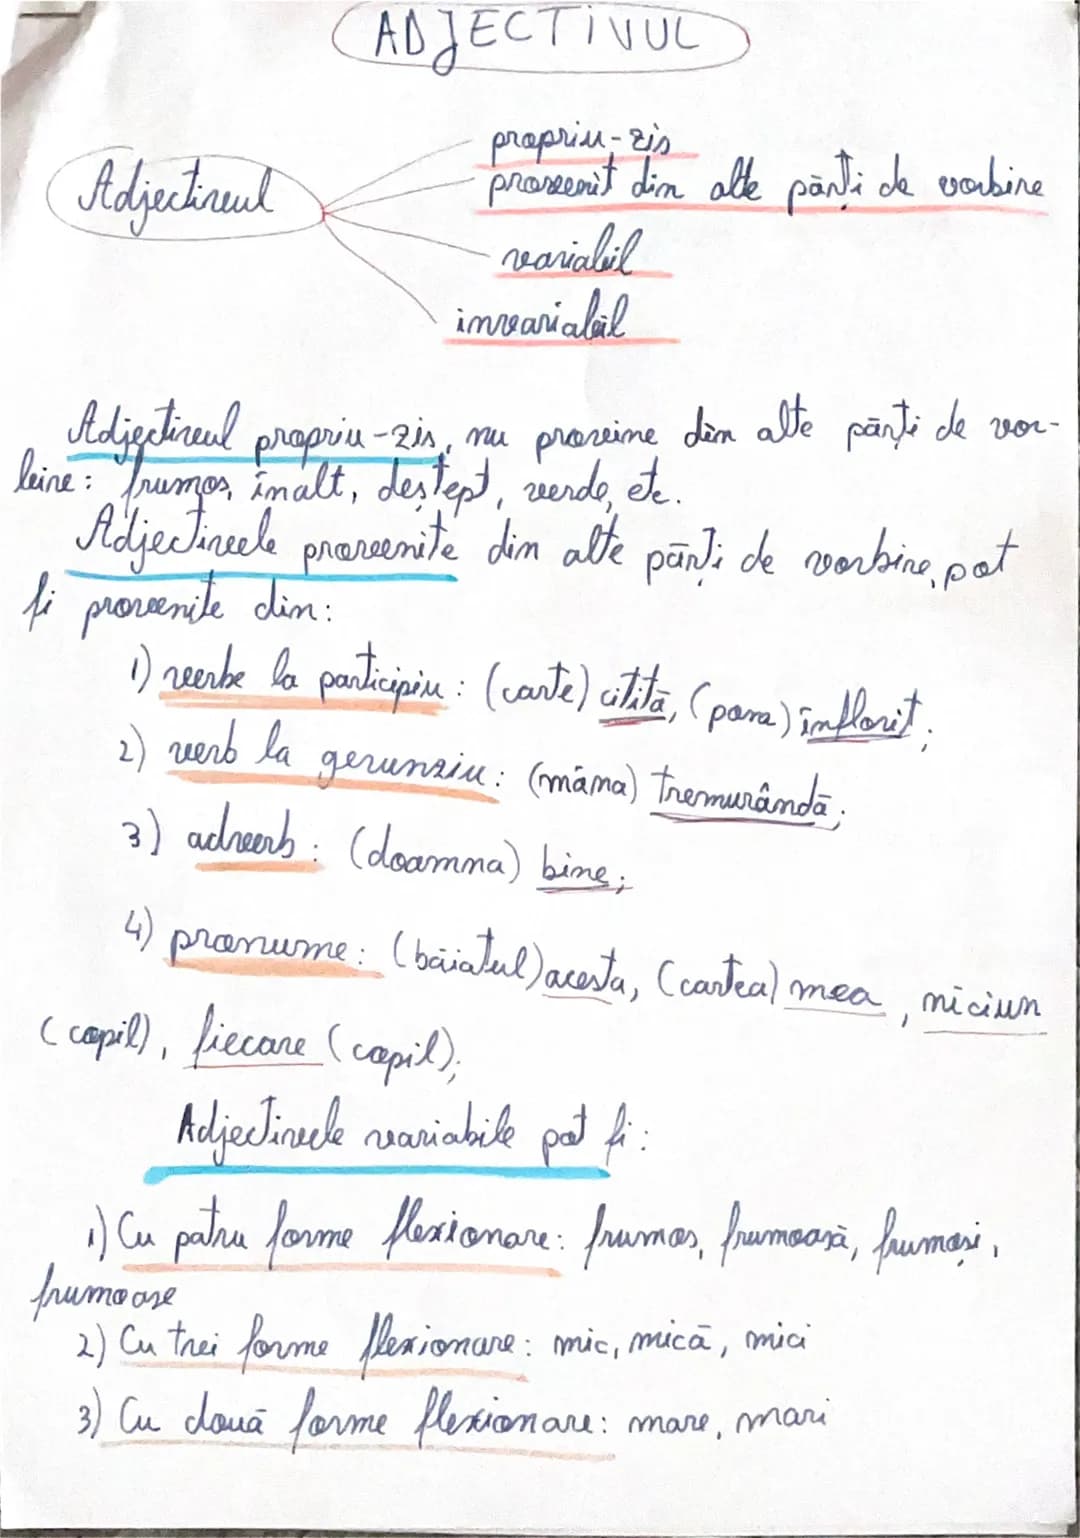 ADJECTIVUL
Adjectivul
propriu-zis
provenit din alte părți de vorbire
variabil
invariabil
Adjectivul propriu-zis, nu provine din alte părți de vor-
bire: frumos, înalt, deștept, verde, etc.
Adjectivele provenite din alte părți de vorbire, pot
fi provenite din:
1) verbe la participiu: (carte) citită, (pom) înflorit;
2) verb la gerunziu: (mâna) tremurândă;
3) adverb: (doamna) bine;
4) pronume: (băiatul) acesta, (cartea) mea, niciun
(copil), fiecare (copil);
Adjectivele variabile pot fi:
1) Cu patru forme flexionare: frumos, frumoasă, frumoși,
frumoase
2) Cu trei forme flexionare: mic, mică, mici
3) Cu două forme flexionare: mare, mari